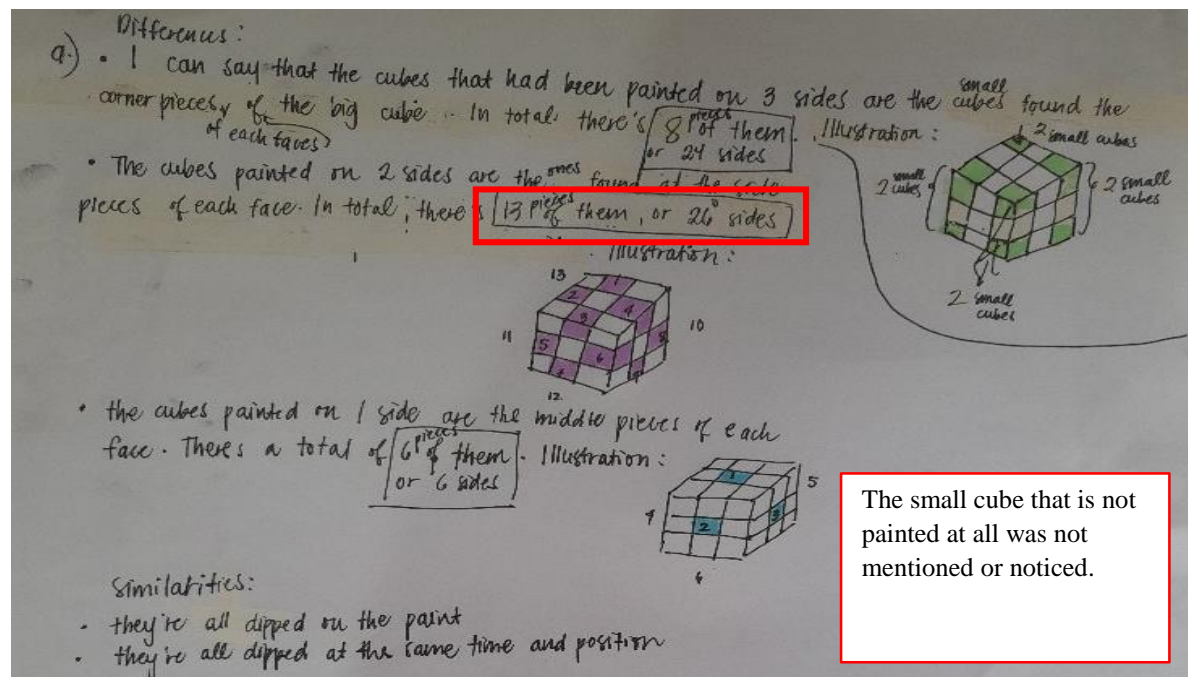 Differences:
a.) • I can say that the cubes that had been painted on 3 sides are the small cubes found the
corner pieces of each faces of the big cube. In total there's 8 pieces of them
or 24 sides
. Illustration:
2 small cubes
2 small cubes
2 small cubes
2 small cubes
• The cubes painted on 2 sides are the ones found at the side
pieces of each face. In total, there's 13 pieces of them, or 26 sides
Illustration:
13
1
2
3
4
11
5
6
8
10
7
9
12
• the cubes painted on 1 side are the middle pieces of each
face. There's a total of 6 pieces of them
or 6 sides
. Illustration:
1
5
4
2
3
6
The small cube that is not
painted at all was not
mentioned or noticed.
Similarities:
- they're all dipped on the paint
- they're all dipped at the same time and position